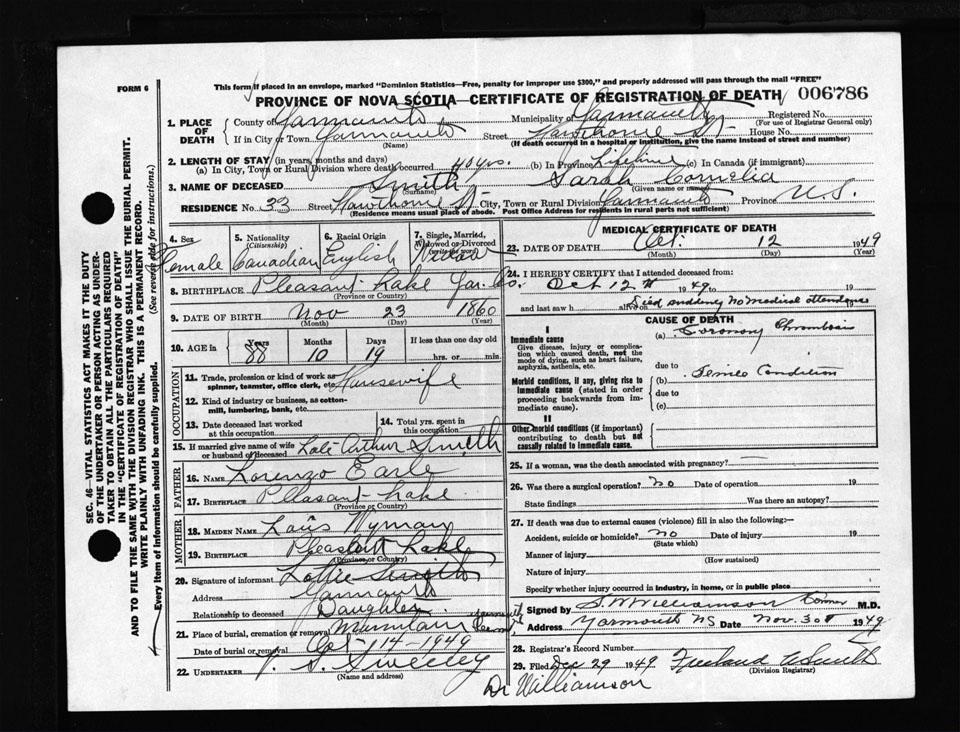 FORM 6
This form if placed in an envelope, marked "Dominion Statistics—Free, penalty for improper use $300," and properly addressed will pass through the mail "FREE"
PROVINCE OF NOVA SCOTIA—CERTIFICATE OF REGISTRATION OF DEATH 006786
1. PLACE OF DEATH
County of Yarmouth Municipality of Yarmouth Registered No.
(For use of Registrar General only)
If in City or Town Yarmouth Street Hawthorne St. House No.
(Name) (If death occurred in a hospital or institution, give the name instead of street and number)
2. LENGTH OF STAY (in years, months and days)
(a) In City, Town or Rural Division where death occurred 40 yrs. (b) In Province Lifetime (c) In Canada (if immigrant)
3. NAME OF DECEASED Smith Sarah Cornelia
(Surname) (Given name or names)
RESIDENCE No. 33 Street Hawthorne St. City, Town or Rural Division Yarmouth Province N.S.
(Residence means usual place of abode. Post Office Address for residents in rural parts not sufficient)
4. Sex
Female
5. Nationality
(Citizenship)
Canadian
6. Racial Origin
English
7. Single, Married, Widowed or Divorced
(write the word)
Widow
8. BIRTHPLACE Pleasant Lake Yar. Co.
(Province or Country)
9. DATE OF BIRTH Nov 23 1860
(Month) (Day) (Year)
10. AGE in
Years Months Days If less than one day
88 10 19 hrs. or min.
OCCUPATION
11. Trade, profession or kind of work as spinner, teamster, office clerk, etc. Housewife
12. Kind of industry or business, as cotton-mill, lumbering, bank, etc.
13. Date deceased last worked at this occupation
14. Total yrs. spent in this occupation
15. If married give name of wife or husband of deceased Late Arthur Smith
FATHER
16. NAME Lorenzo Earle
17. BIRTHPLACE Pleasant Lake
MOTHER
18. MAIDEN NAME Lois Wyman
19. BIRTHPLACE Pleasant Lake
(Province or Country)
20. Signature of informant Lottie Smith
Address Yarmouth
Relationship to deceased Daughter
21. Place of burial, cremation or removal Mountain Cem.
Date of burial or removal Oct 14 - 1949
22. UNDERTAKER V. S. Sweeney
(Name and address)
MEDICAL CERTIFICATE OF DEATH
23. DATE OF DEATH Oct. 12 1949
(Month) (Day) (Year)
24. I HEREBY CERTIFY that I attended deceased from:
Oct 12th 1949 to 19
and last saw h alive on Died suddenly No medical attendance
CAUSE OF DEATH
I
Immediate cause
Give disease, injury or complication which caused death, not the mode of dying, such as heart failure, asphyxia, asthenia, etc.
(a) Coronary Thrombosis
due to
Morbid conditions, if any, giving rise to immediate cause (stated in order proceeding backwards from immediate cause).
(b) Senile Condition
due to
(c)
II
Other morbid conditions (if important) contributing to death but not causally related to immediate cause.
25. If a woman, was the death associated with pregnancy? —
26. Was there a surgical operation? No Date of operation 19
State findings Was there an autopsy?
27. If death was due to external causes (violence) fill in also the following:—
Accident, suicide or homicide? No Date of injury 19
(State which)
Manner of injury
(How sustained)
Nature of injury
Specify whether injury occurred in industry, in home, or in public place
Signed by S W Williamson Coroner M.D.
Address Yarmouth NS Date Nov. 30th 1949
28. Registrar's Record Number
29. Filed Dec 29 1949
(Division Registrar)
Dr Williamson
SEC. 46—VITAL STATISTICS ACT MAKES IT THE DUTY
OF THE UNDERTAKER OR PERSON ACTING AS UNDERTAKER TO OBTAIN ALL THE PARTICULARS REQUIRED
IN THE "CERTIFICATE OF REGISTRATION OF DEATH"
AND TO FILE THE SAME WITH THE DIVISION REGISTRAR WHO SHALL ISSUE THE BURIAL PERMIT.
WRITE PLAINLY WITH UNFADING INK. THIS IS A PERMANENT RECORD.
Every item of information should be carefully supplied. (See reverse side for instructions.)